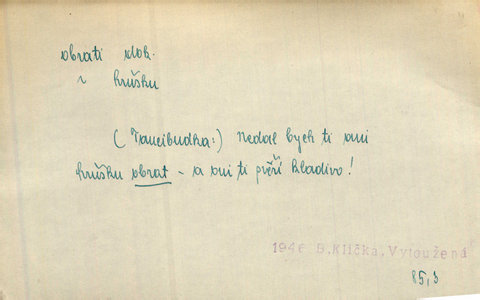 obrati dok.
v hrůšku
(Tancibudka:) Nedal bych ti ani
hrůšku obrat – a ani ti pěří kladivo!
1946 B.Klička, Vytoužená
85,3